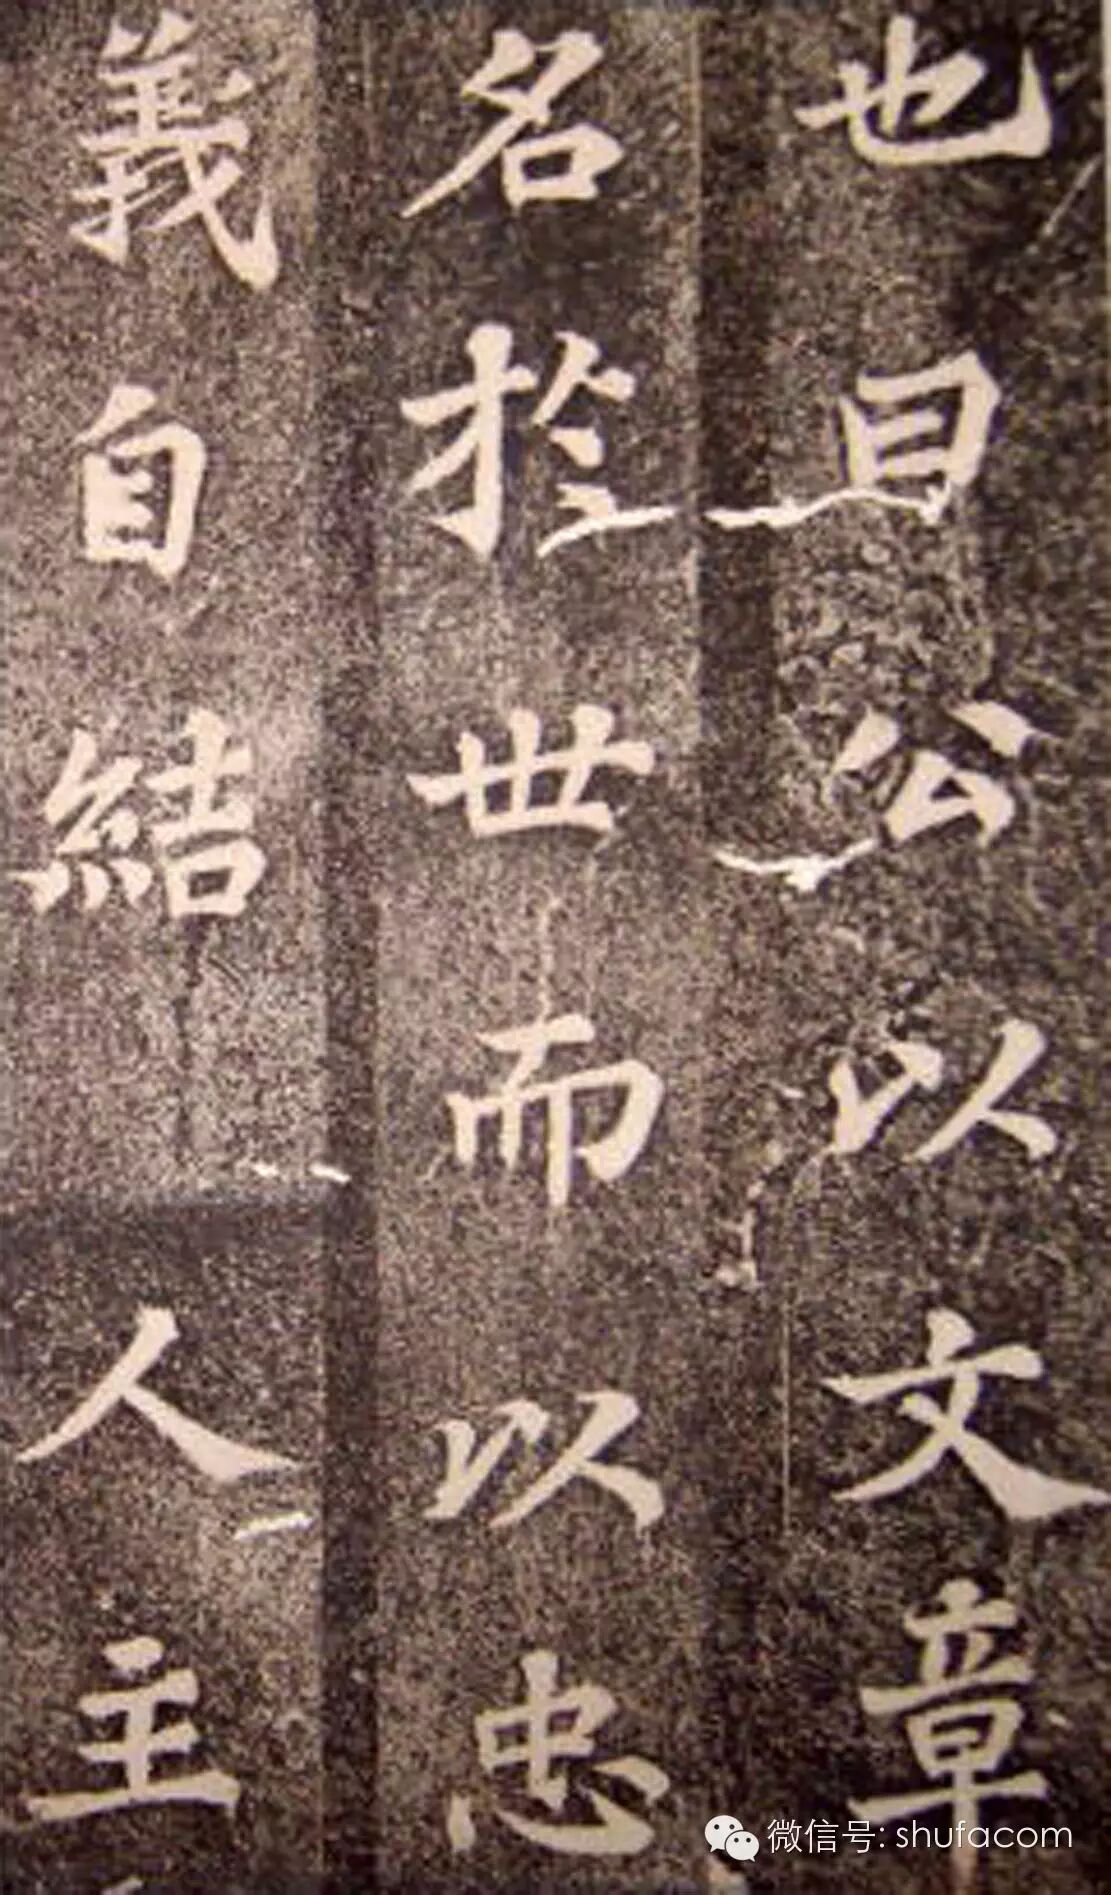 也目公以文章
名於世而以忠
義自結人主
微信号: shufacom